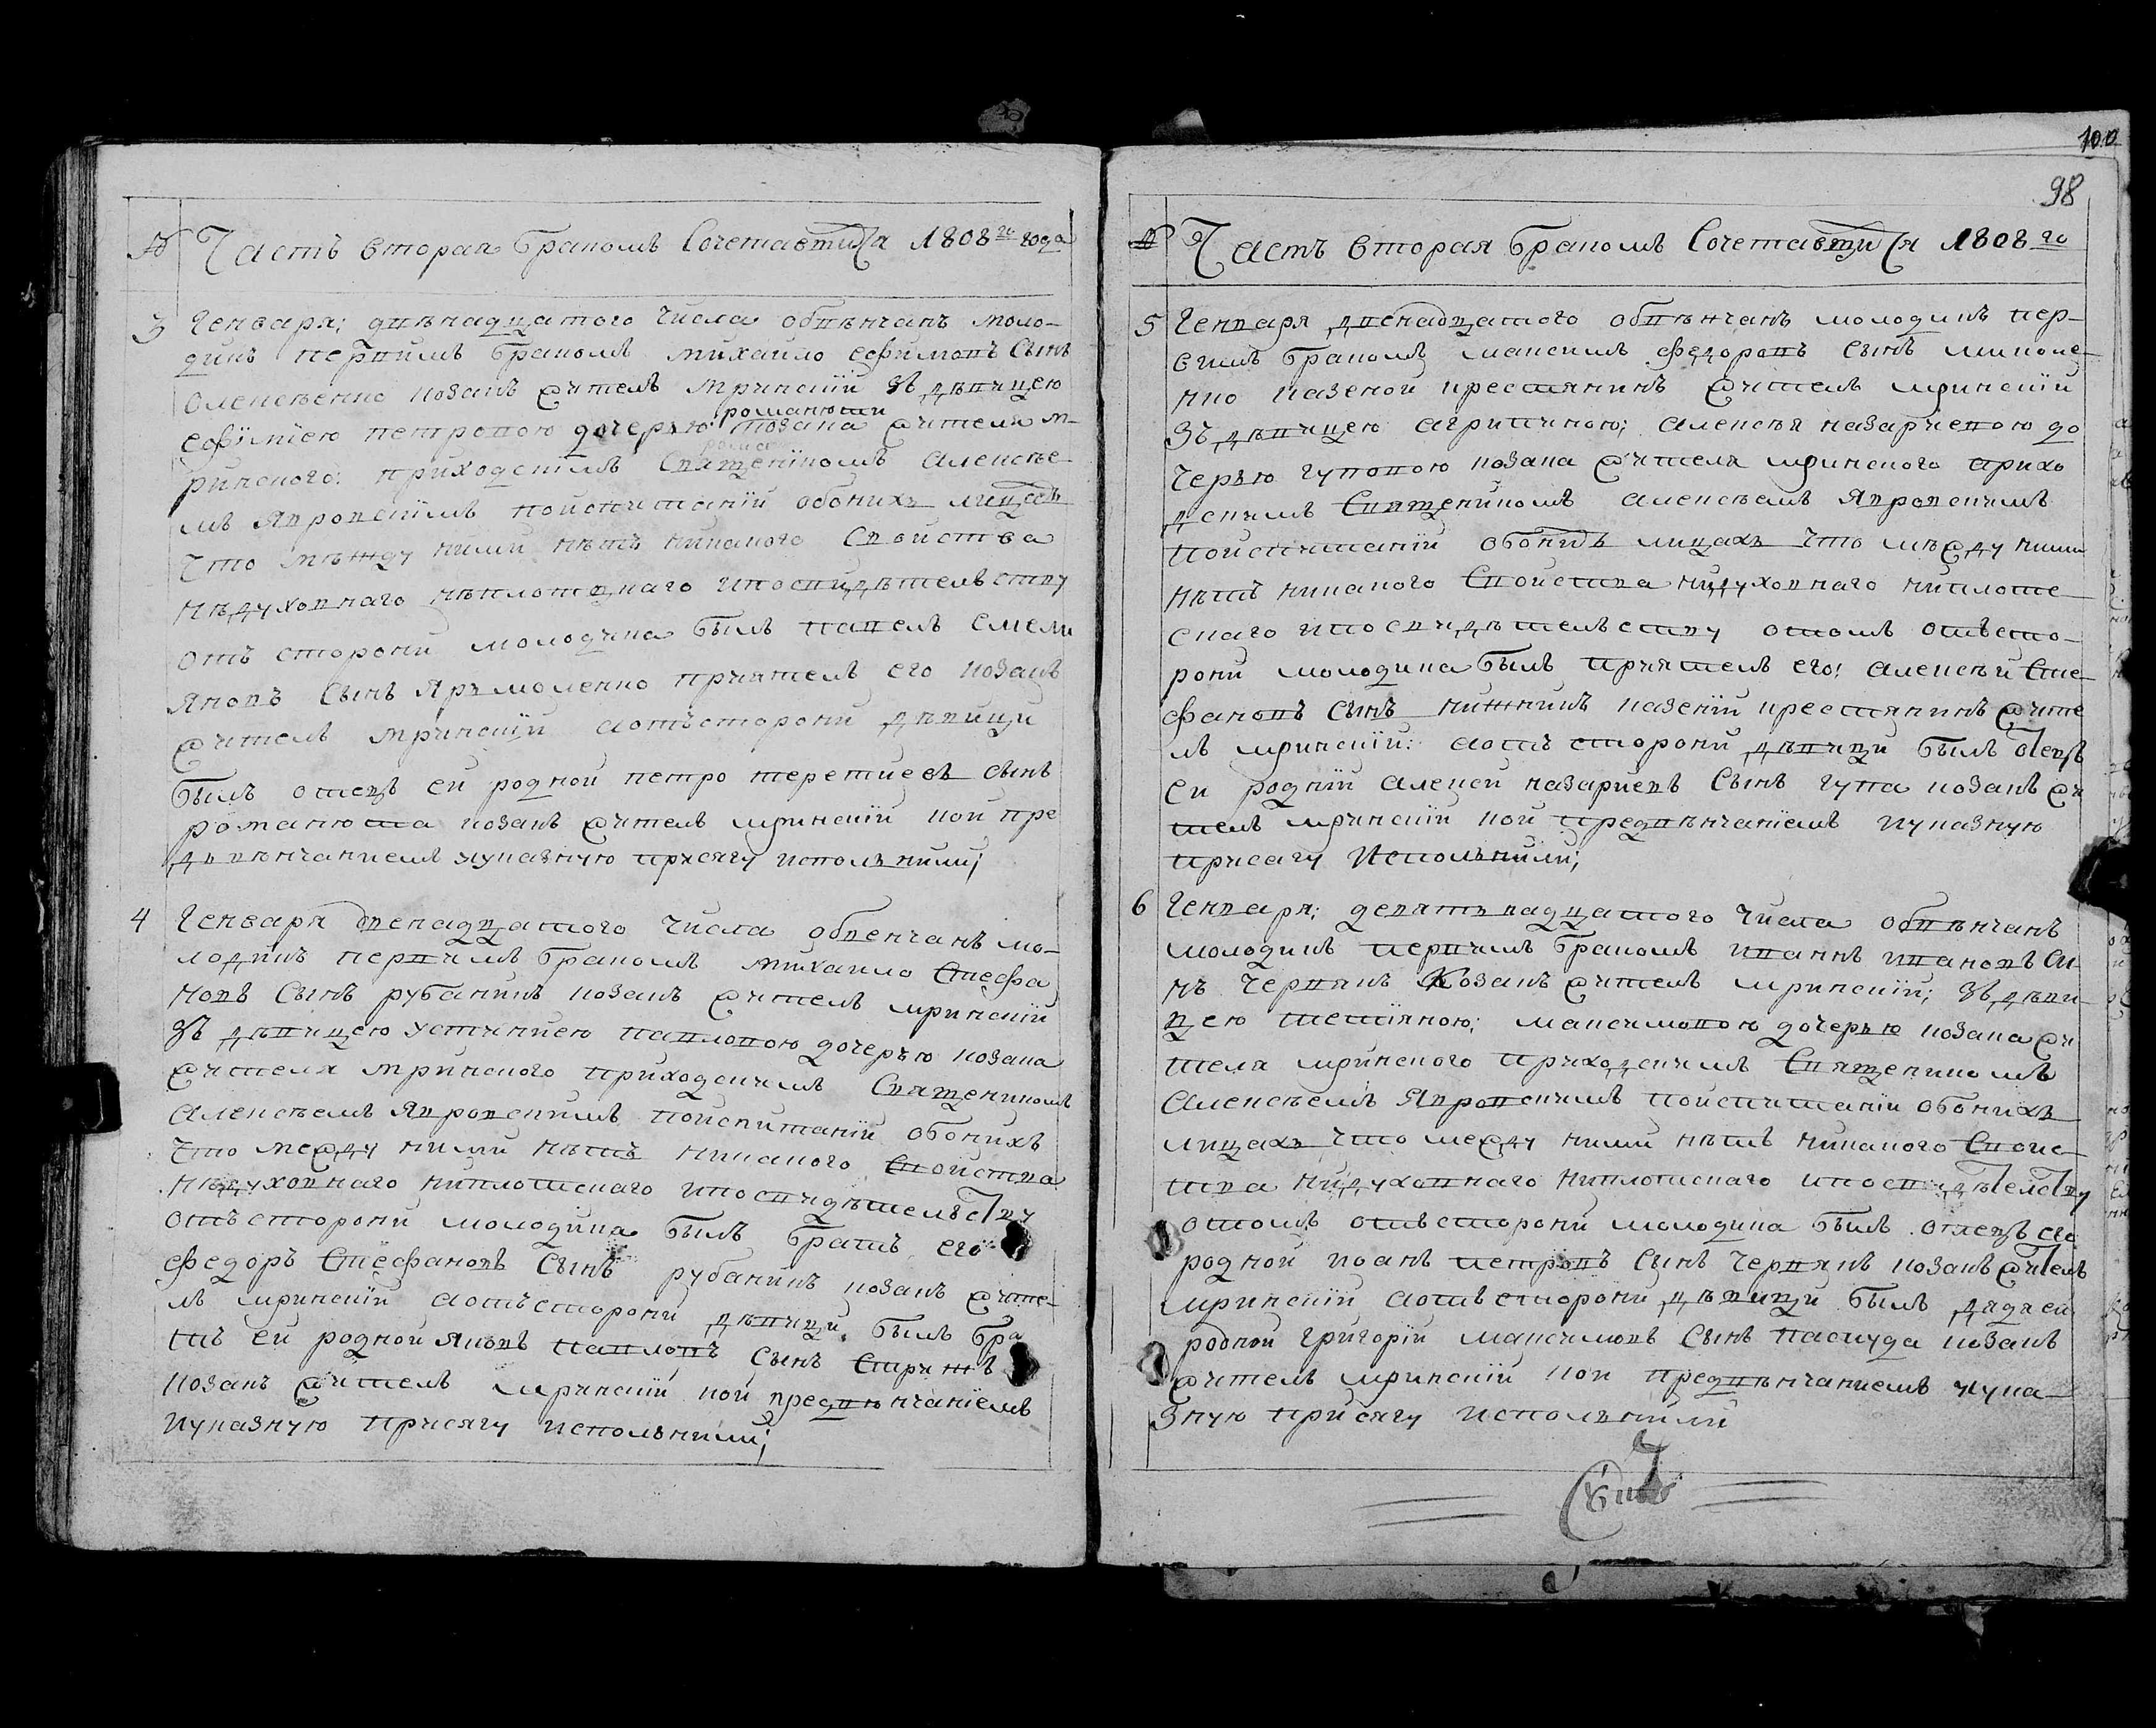 № Часть вторая браком Сочетавшихся 1808го года
3 Генваря; двѣнадцатого числа обвѣнчанъ моло-
дикъ первимъ бракомъ михаило ефимовъ сынъ
Олексѣенко козакъ житель мринскій зъ дѣвицею
романюти
ефіміею петровою дочерью козака жителя м-
ринского: приходскимъ Священікомъ алексѣе-
мъ Явровскимъ поиспитаніи обоихъ лицахъ
что мѣжду ними нѣтъ никакого Своиства
нѣдуховнаго нѣплотскаго ипосвидѣтелъству
отъ сторони молодика былъ Павелъ емели
яновъ сынъ Яръмоленко приятель его козакъ
житель мринскій аотъсторони дѣвици
былъ отецъ ей родной петро теретиевъ сынъ
романюта козакъ житель мринскій кои пре
двѣнчаниемъ иуказную присягу исполънили;
4 Генваря двенадцатого числа обвенчанъ мо-
лодикъ первимъ бракомъ михаило Стефа
новъ сынъ рубаникъ козакъ житель мринскій
зъ дѣвицею устиниею павловою дочеръю козака
жителя мринского приходскимъ Священикомъ
Алексѣемъ Явровскимъ поиспитаніи обоихъ
что между ними нѣтъ никакого Своиства
нѣдуховнаго ниплотскаго ипосвидѣтелъству
отъсторони молодика былъ братъ его
федоръ Стефановъ сынъ рубаникъ козакъ жите-
лъ мринскій аотъсторони дѣвици былъ бра
тъ ей родной Яковъ павловъ сынъ Стрижъ
козакъ житель мринскій кои предвѣнчаніемъ
иуказную присягу исполънили;
100
98
№ Часть вторая браком Сочетавшихся 1808го
5 Генваря двенадцатого обвѣнчанъ молодикъ пер-
вимъ бракомъ максимъ федоровъ сынъ миконе-
нко казеной крестянинъ житель мринскій
зъ дѣвицею агрипиною; алексѣя назариевою до
черъю гуповою козака жителя мринского прихо
дскимъ Священикомъ алексѣемъ Явровскимъ
поиспитаніи обоихъ лицахъ что мѣжду ними
нѣтъ никакого Своиства нидуховнаго ниплоте
скаго ипосвидѣтелъству отомъ отъсто-
рони молодика былъ приятель его; алексѣй Сте-
фановъ сынъ нижникъ казеній крестянинъ жите
лъ мринскій: аотъ сторони дѣвици былъ отецъ
ей родній алексѣй назариевъ сынъ гупа козакъ жи
тель мринскій кои предвѣнчаніемъ иуказную
присагу Исполънили;
6 Генваря; девятънадцатого числа обвѣнчанъ
молодикъ первимъ бракомъ иваннъ ивановъ си-
нъ Червякъ Козакъ житель мринскій; зъ дѣви-
цею тетіяною; максимовою дочерью козака жи
теля мринского приходскимъ Священикомъ
Алексѣемъ Явровскимъ поиспитаніи обоихъ
лицахъ что между ними нѣтъ никакого Своис-
тва нидуховнаго ниплотскаго ипосвидѣтелству
отомъ отъсторони молодика былъ отецъ его
родной иоанъ петровъ сынъ Червякъ козакъ житель
мринскій аотъсторони дѣвици былъ дядя ей
родной григорій максимовъ сынъ паскуда козакъ
житель мринскій кои предвѣнчаниемъ иука-
зную присягу исполънили